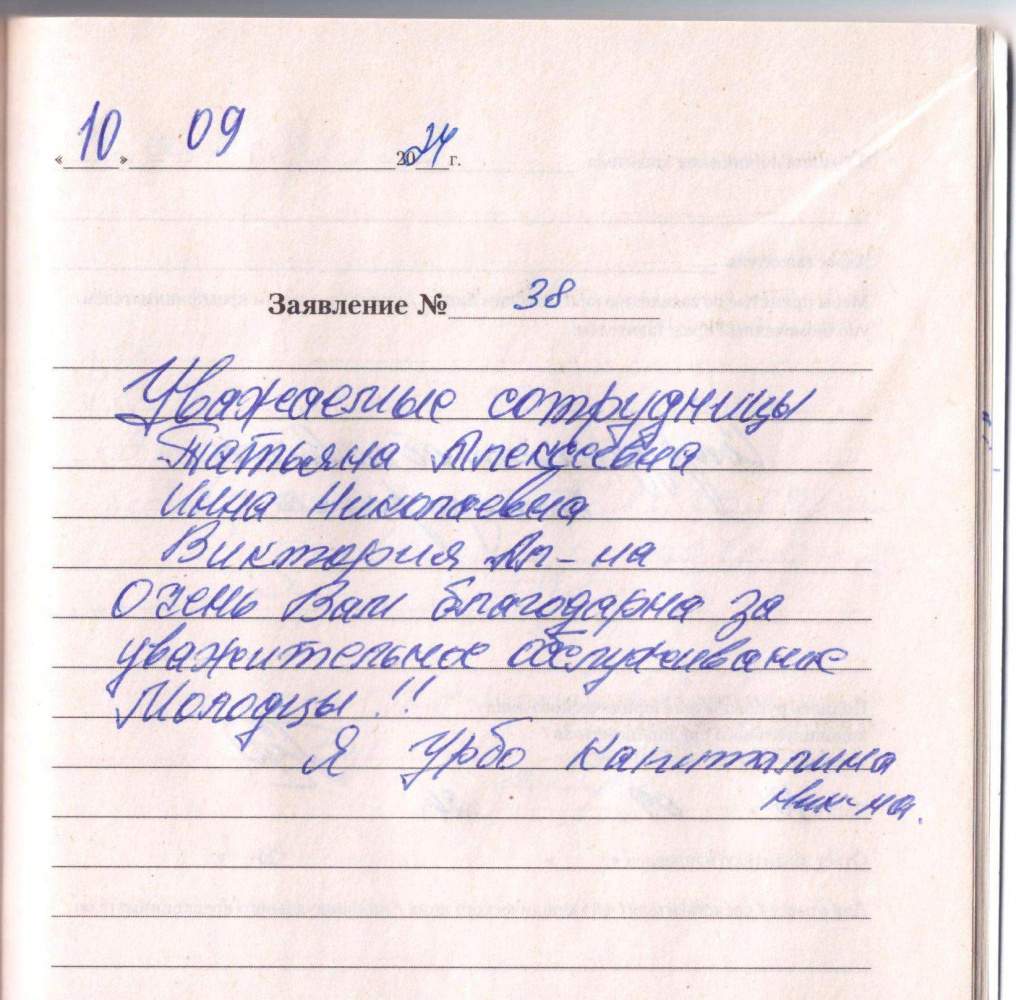 « 10 » 09 2024 г.
Заявление № 38
Уважаемые сотрудницы
Татьяна Алексеевна
Инна Николаевна
Виктория Ал-на
Очень Вам благодарна за
уважительное обслуживание
Молодцы!!
Я Урбо Капиталина
Ник-на.